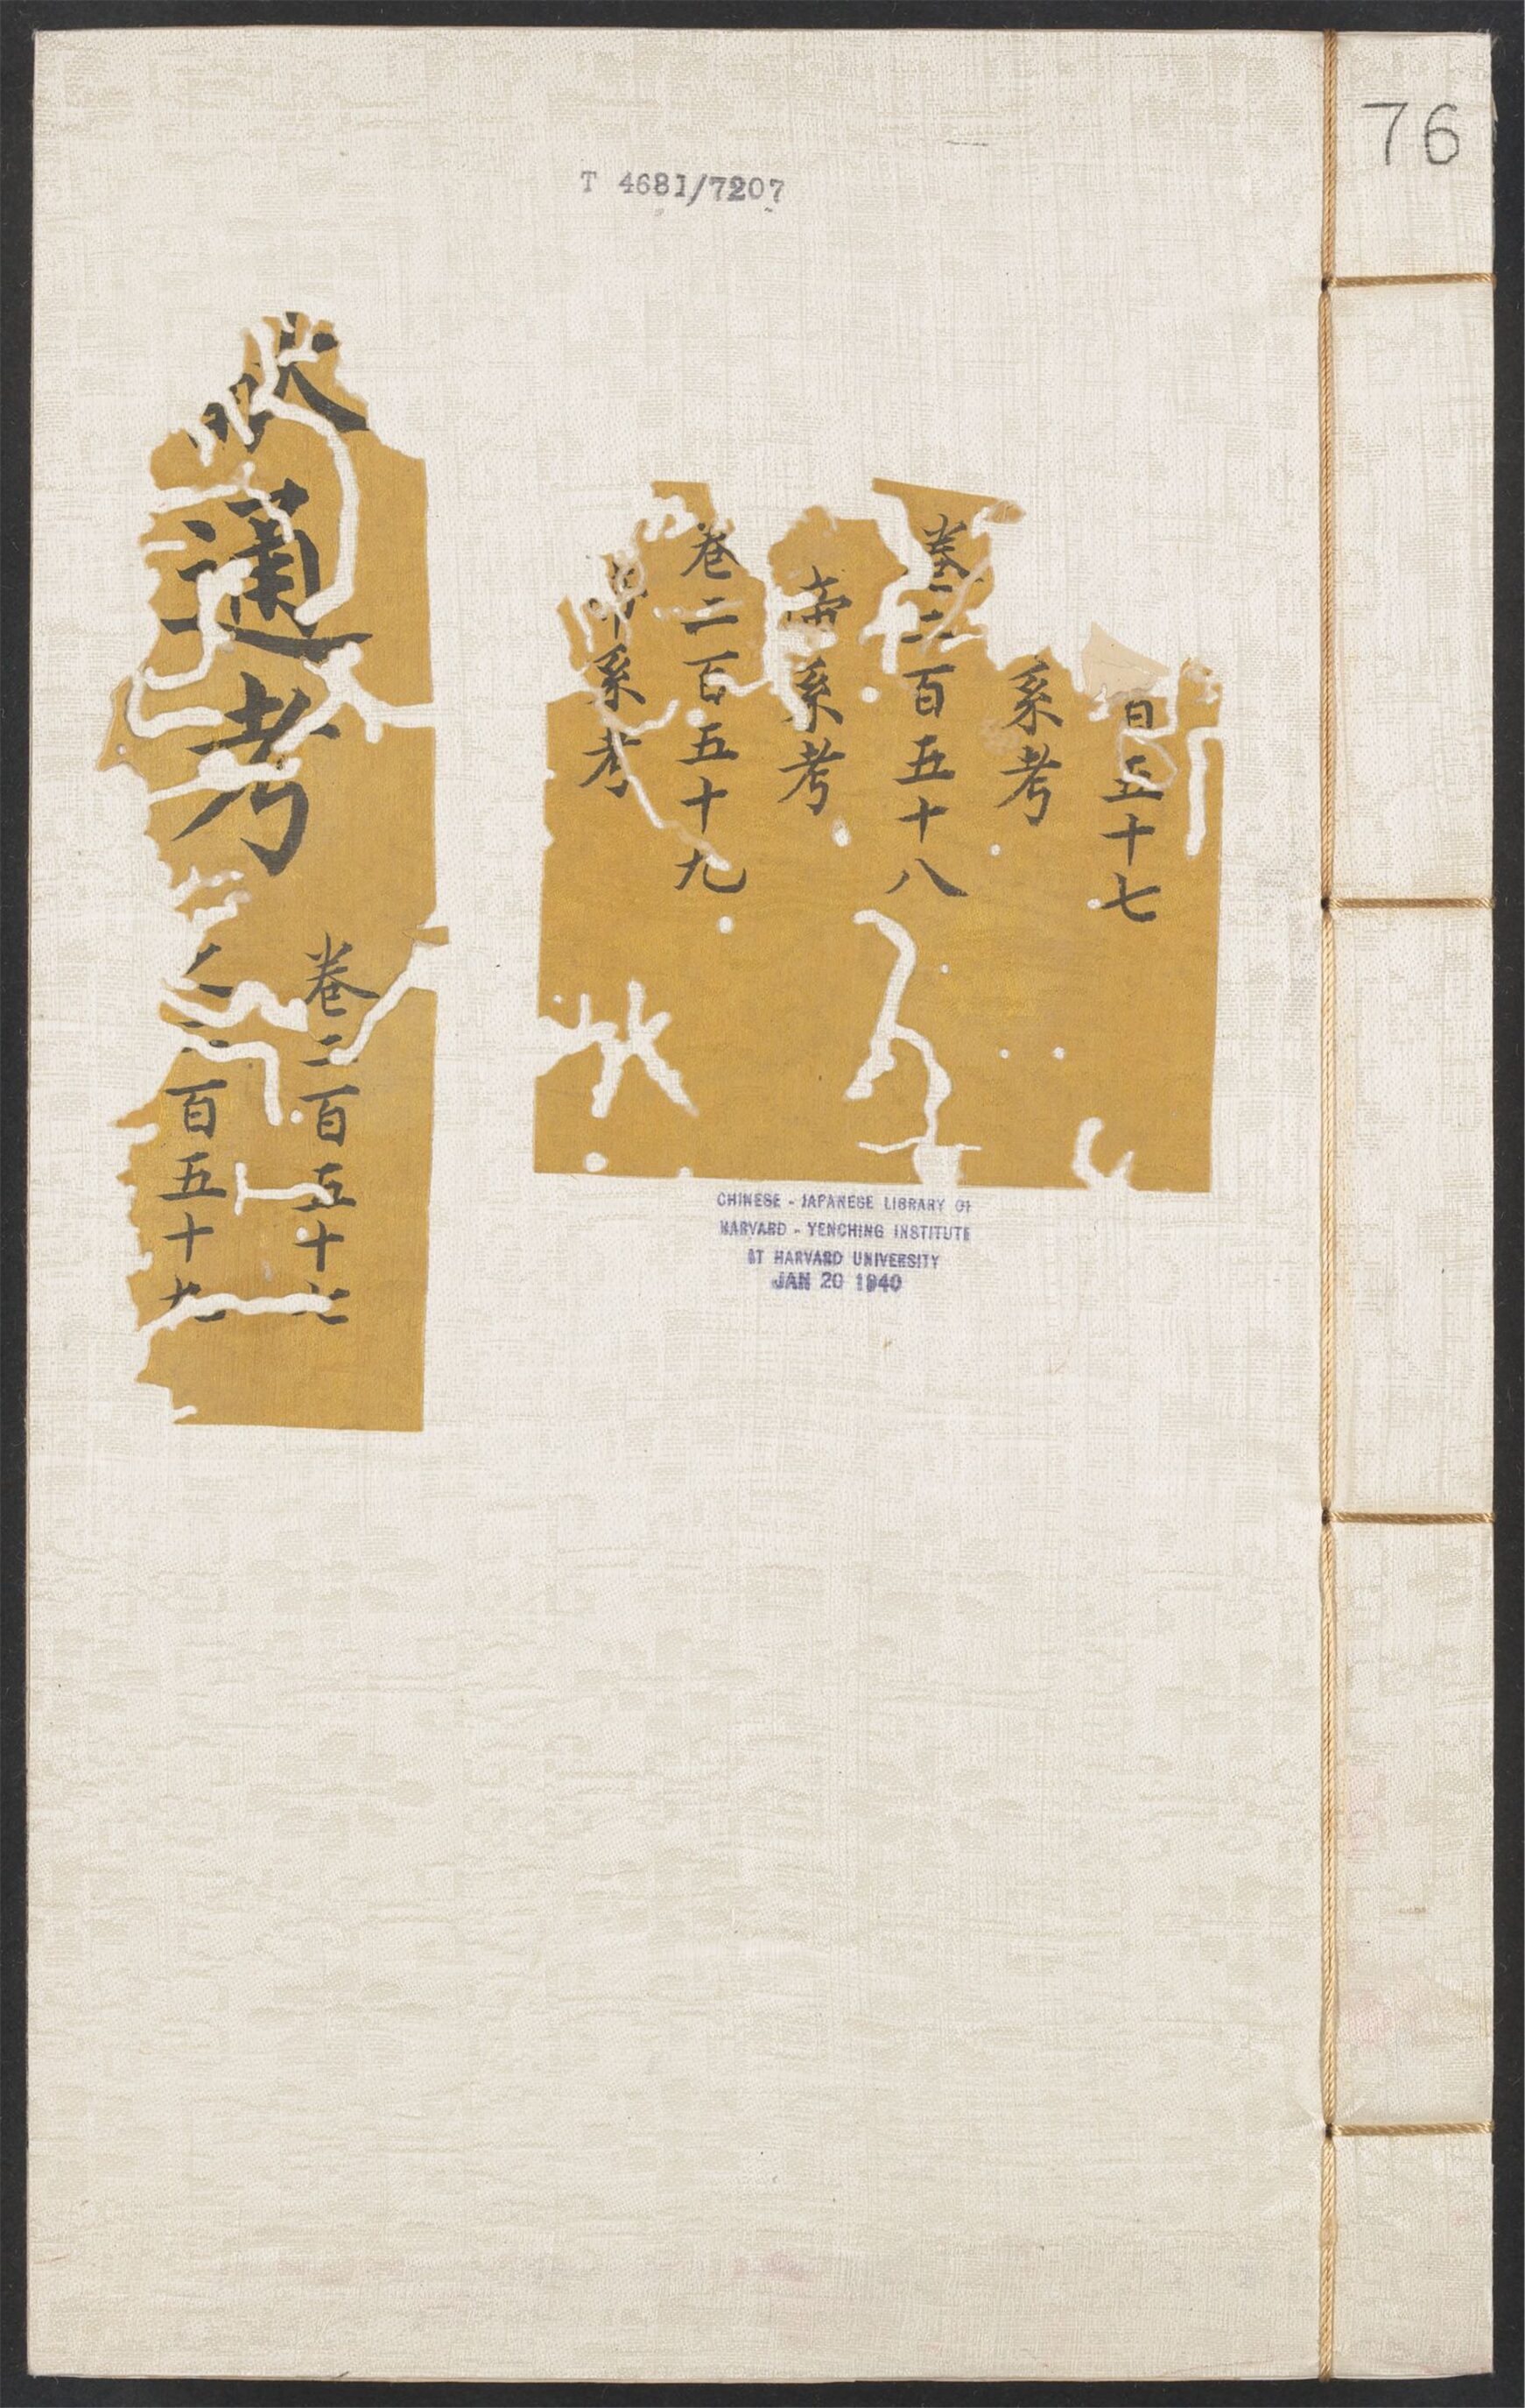 76
T 4681/7207
百五十七
系考
卷二百五十八
帝系考
卷二百五十九
帝系考
通考
卷二百五十七
百五十九
CHINESE - JAPANESE LIBRARY OF
HARVARD - YENCHING INSTITUTE
AT HARVARD UNIVERSITY
JAN 20 1940